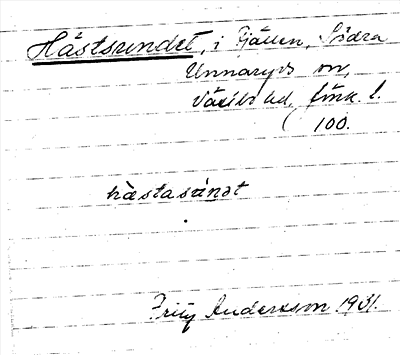 Hästsundet, i Fjällen, Södra
Unnaryds sn,
Västbo hd,
100.
hästasúndt
Fritz Andersson. 1931.